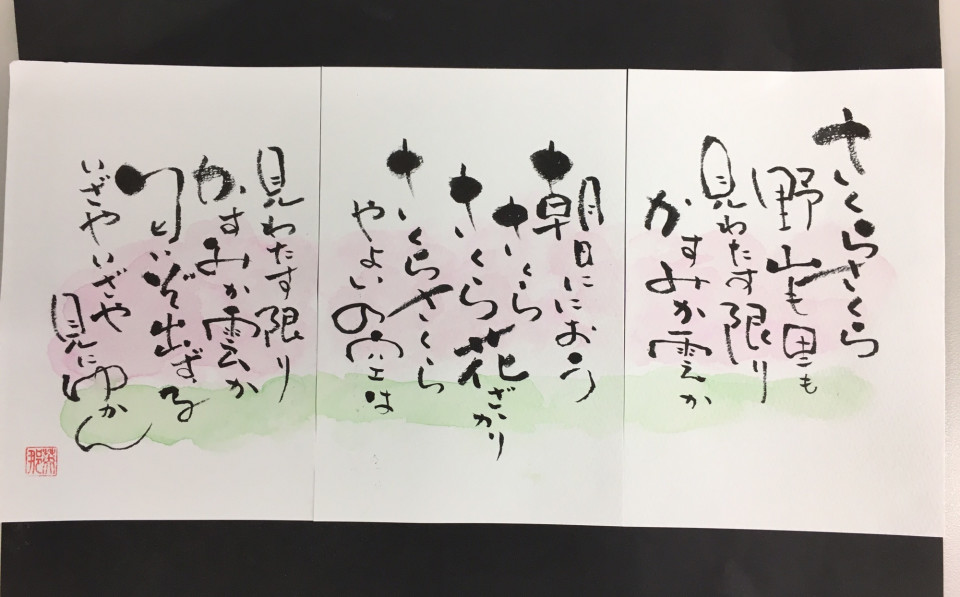 さくらさくら
野山も里も
見わたす限り
かすみか雲か
朝日ににおう
さくら
さくら花ざかり
さくらさくら
やよいの空は
見わたす限り
かすみか雲か
匂いぞ出ずる
いざやいざや
見にゆかん